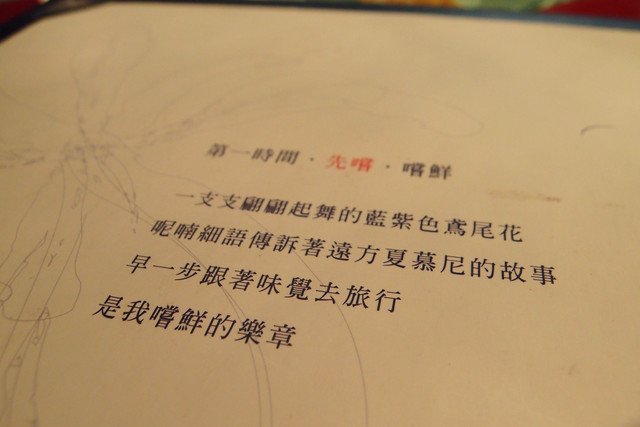 第一時間·先嚐·嚐鮮
一支支翩翩起舞的藍紫色鳶尾花
呢喃細語傳訴著遠方夏慕尼的故事
早一步跟著味覺去旅行
是我嚐鮮的樂章